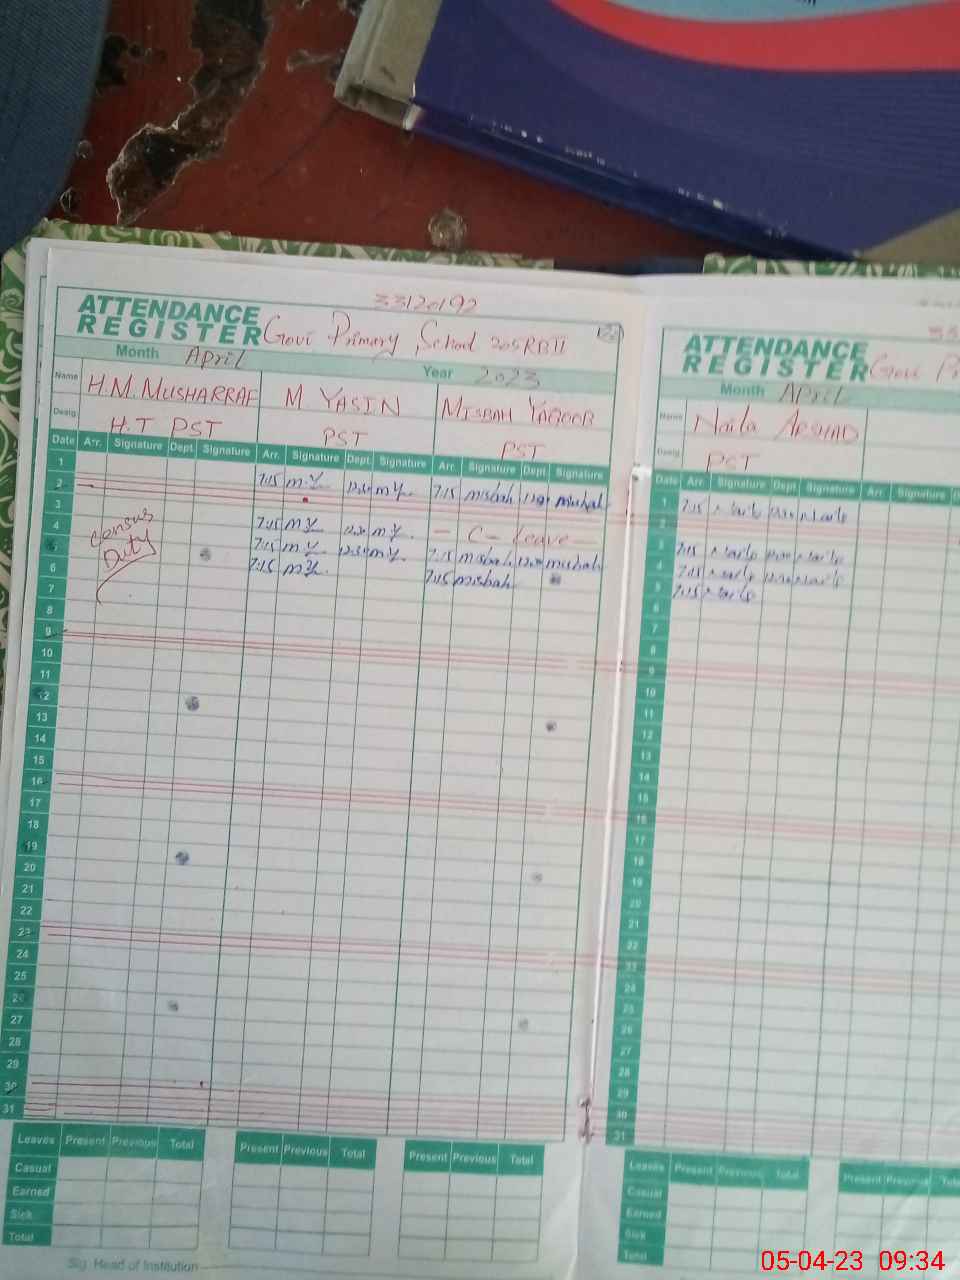 33120192
ATTENDANCE
REGISTER Govt Primary School 205RBII
Month April Year 2023
Name H.M. MUSHARRAF M. YASIN MISBAH YAQOOB
Desig H.T PST PST PST
Date Arr. Signature Dept. Signature Arr. Signature Dept. Signature Arr. Signature Dept. Signature
1 7:15 M.Y. 12:30 M.Y. 7:15 misbah misbah
2
3 7:15 M.Y. 12:30 M.Y. — C – Leave —
4 Census 7:15 M.Y. 12:30 M.Y. 7:15 misbah 12:30 misbah
5 Duty 7:15 M.Y. 7:15 misbah
6
7
8
9
10
11
12
13
14
15
16
17
18
19
20
21
22
23
24
25
26
27
28
29
30
31
Leaves Present Previous Total Present Previous Total Present Previous Total
Casual
Earned
Sick
Total
Sig. Head of Institution
ATTENDANCE
REGISTER Govt
Month April
Name Naila ARSHAD
Desig PST
Date Arr. Signature Dept. Signature Arr. Signature
1 7:15 Naila 12:30 Naila
2
3 7:15 Naila 12:30 Naila
4 7:15 Naila 12:30 Naila
5 7:15 Naila
6
7
8
9
10
11
12
13
14
15
16
17
18
19
20
21
22
23
24
25
26
27
28
29
30
31
Leaves Present Previous Total Present Previous
Casual
Earned
Sick
Total
05-04-23 09:34